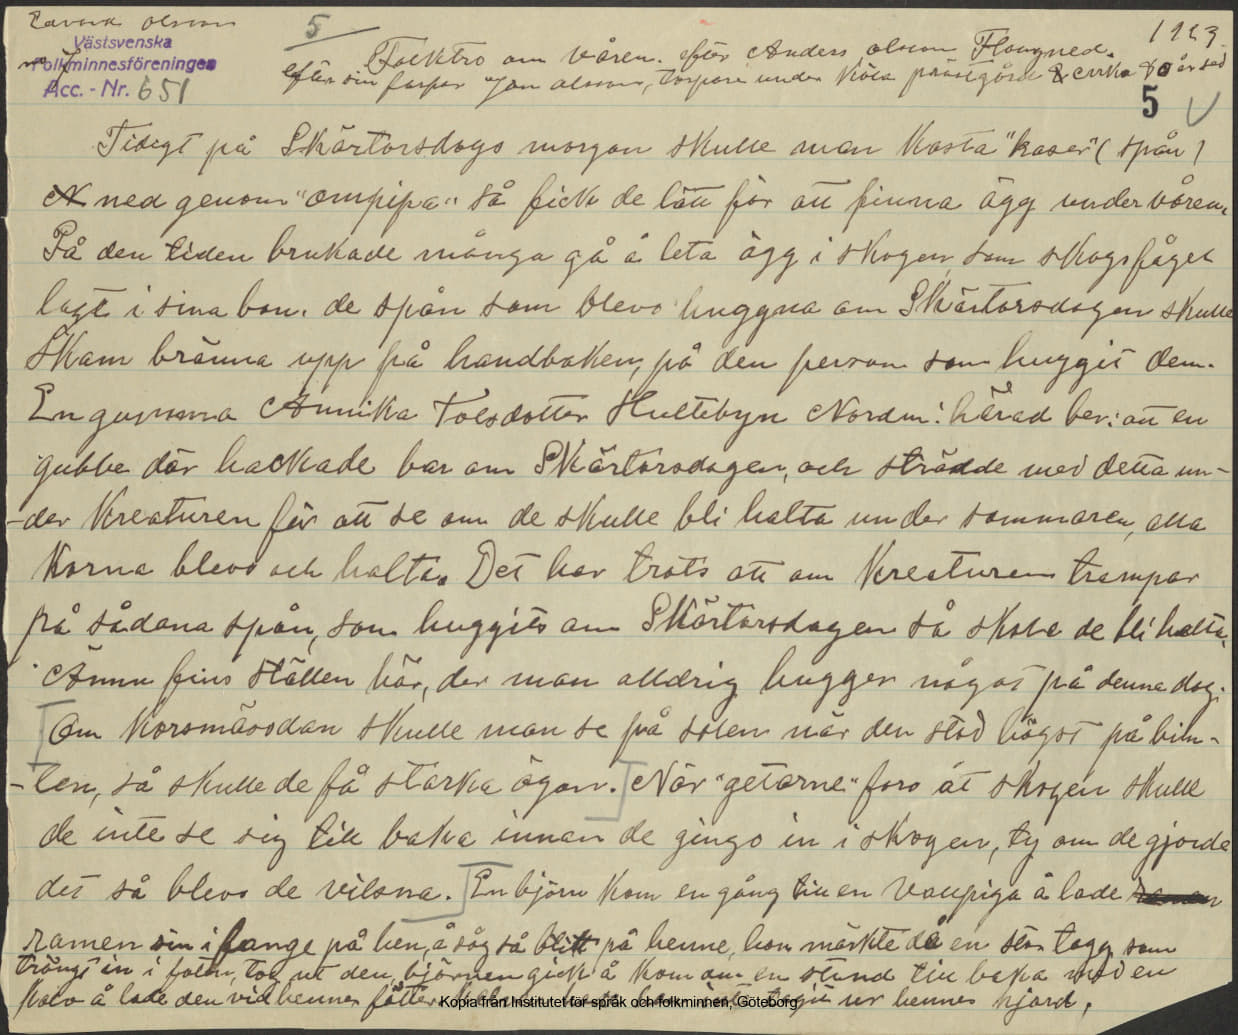 Edvard Olsson
5
1923
Västsvenska
Folkminnesföreningen
Acc. - Nr. 651
Folktro om våren. efter Anders olsson Flougned.
efter sin farfar Jan olsson, torpare under Köla prästgård cirka 80 år sed
5
Tidigt på Skärtorsdags morgon skulle man kasta "kaser" (spån)
ned genom "ompipa" så fick de lätt för att finna ägg under våren.
På den tiden brukade många gå å leta ägg i skogen, som skogsfågel
lagt i sina bon. de spån som blevo huggna om Skärtorsdagen skulle
Skam bränna upp på handbaken, på den person som huggit dem.
En gumma Annika Tolsdotter Hultebyn Nordm: härad ber: att en
gubbe där hackade bar om Skärtorsdagen, och strödde med detta un-
-der Kreaturen för att se om de skulle bli halta under sommaren, alla
Korna blevo och halta. Det har trots att om Kreaturen trampar
på sådana spån, som huggits om Skärtorsdagen så skole de bli halta.
Ännu fins ställen här, der man alldrig hugger något på denna dag.
Om Korsmässodan skulle man se på solen när den stod högst på him-
-len, så skulle de få starka ögon. När "getarne" foro åt skogen skulle
de inte se sig till baka innan de gingo in i skogen, ty om de gjorde
det så blevo de vilsna. En björn kom en gång till en vallpiga å lade
ramen sin i fange på hen, å såg så blitt på henne, hon märkte då en stor tagg som
trängt in i foten, tog ut den, björnen gick å kom om en stund till baka med en
ko å lade den vid hennes fötter ur hennes hjord.
Kopia från Institutet för språk och folkminnen, Göteborg